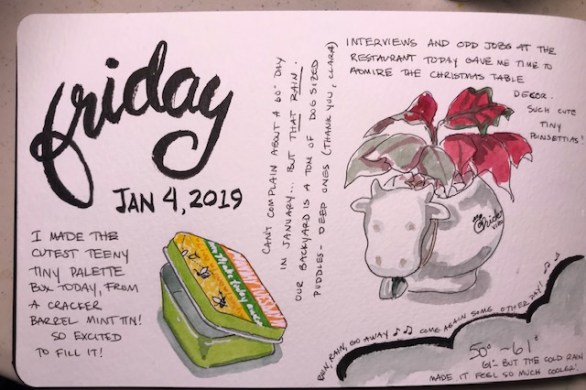 friday
JAN 4, 2019
I MADE THE
CUTEST TEENY
TINY PALETTE
BOX TODAY, FROM
A CRACKER
BARREL MINT TIN!
SO EXCITED
TO FILL IT!
CAN'T COMPLAIN ABOUT A 60° DAY
IN JANUARY... BUT THAT RAIN.
OUR BACKYARD IS A TON OF DOG SIZED
PUDDLES - DEEP ONES (THANK YOU, CLARA)
INTERVIEWS AND ODD JOBS AT THE
RESTAURANT TODAY GAVE ME TIME TO
ADMIRE THE CHRISTMAS TABLE
DECOR.
SUCH CUTE
TINY
POINSETTIAS!
RAIN, RAIN, GO AWAY ♪♫ COME AGAIN SOME OTHER DAY! ♫ ♪
50° - 61°
61° - BUT THE COLD RAIN
MADE IT FEEL SO MUCH COOLER.